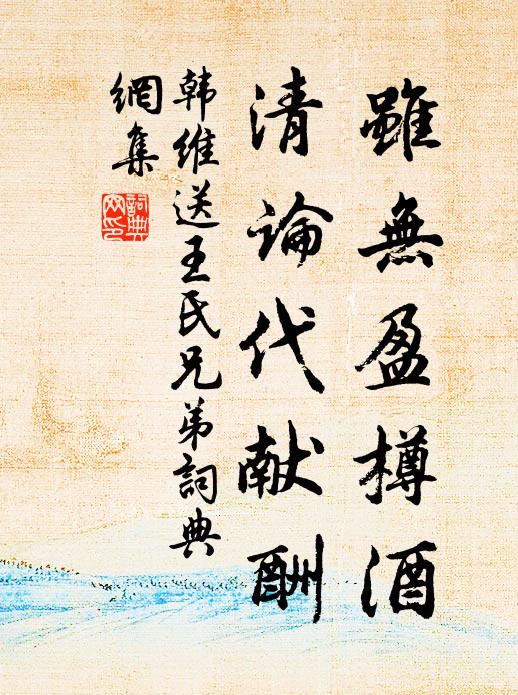 雖無盈樽酒
清論代献酬
韩維送王氏兄弟詞典
網集
詞典
网印